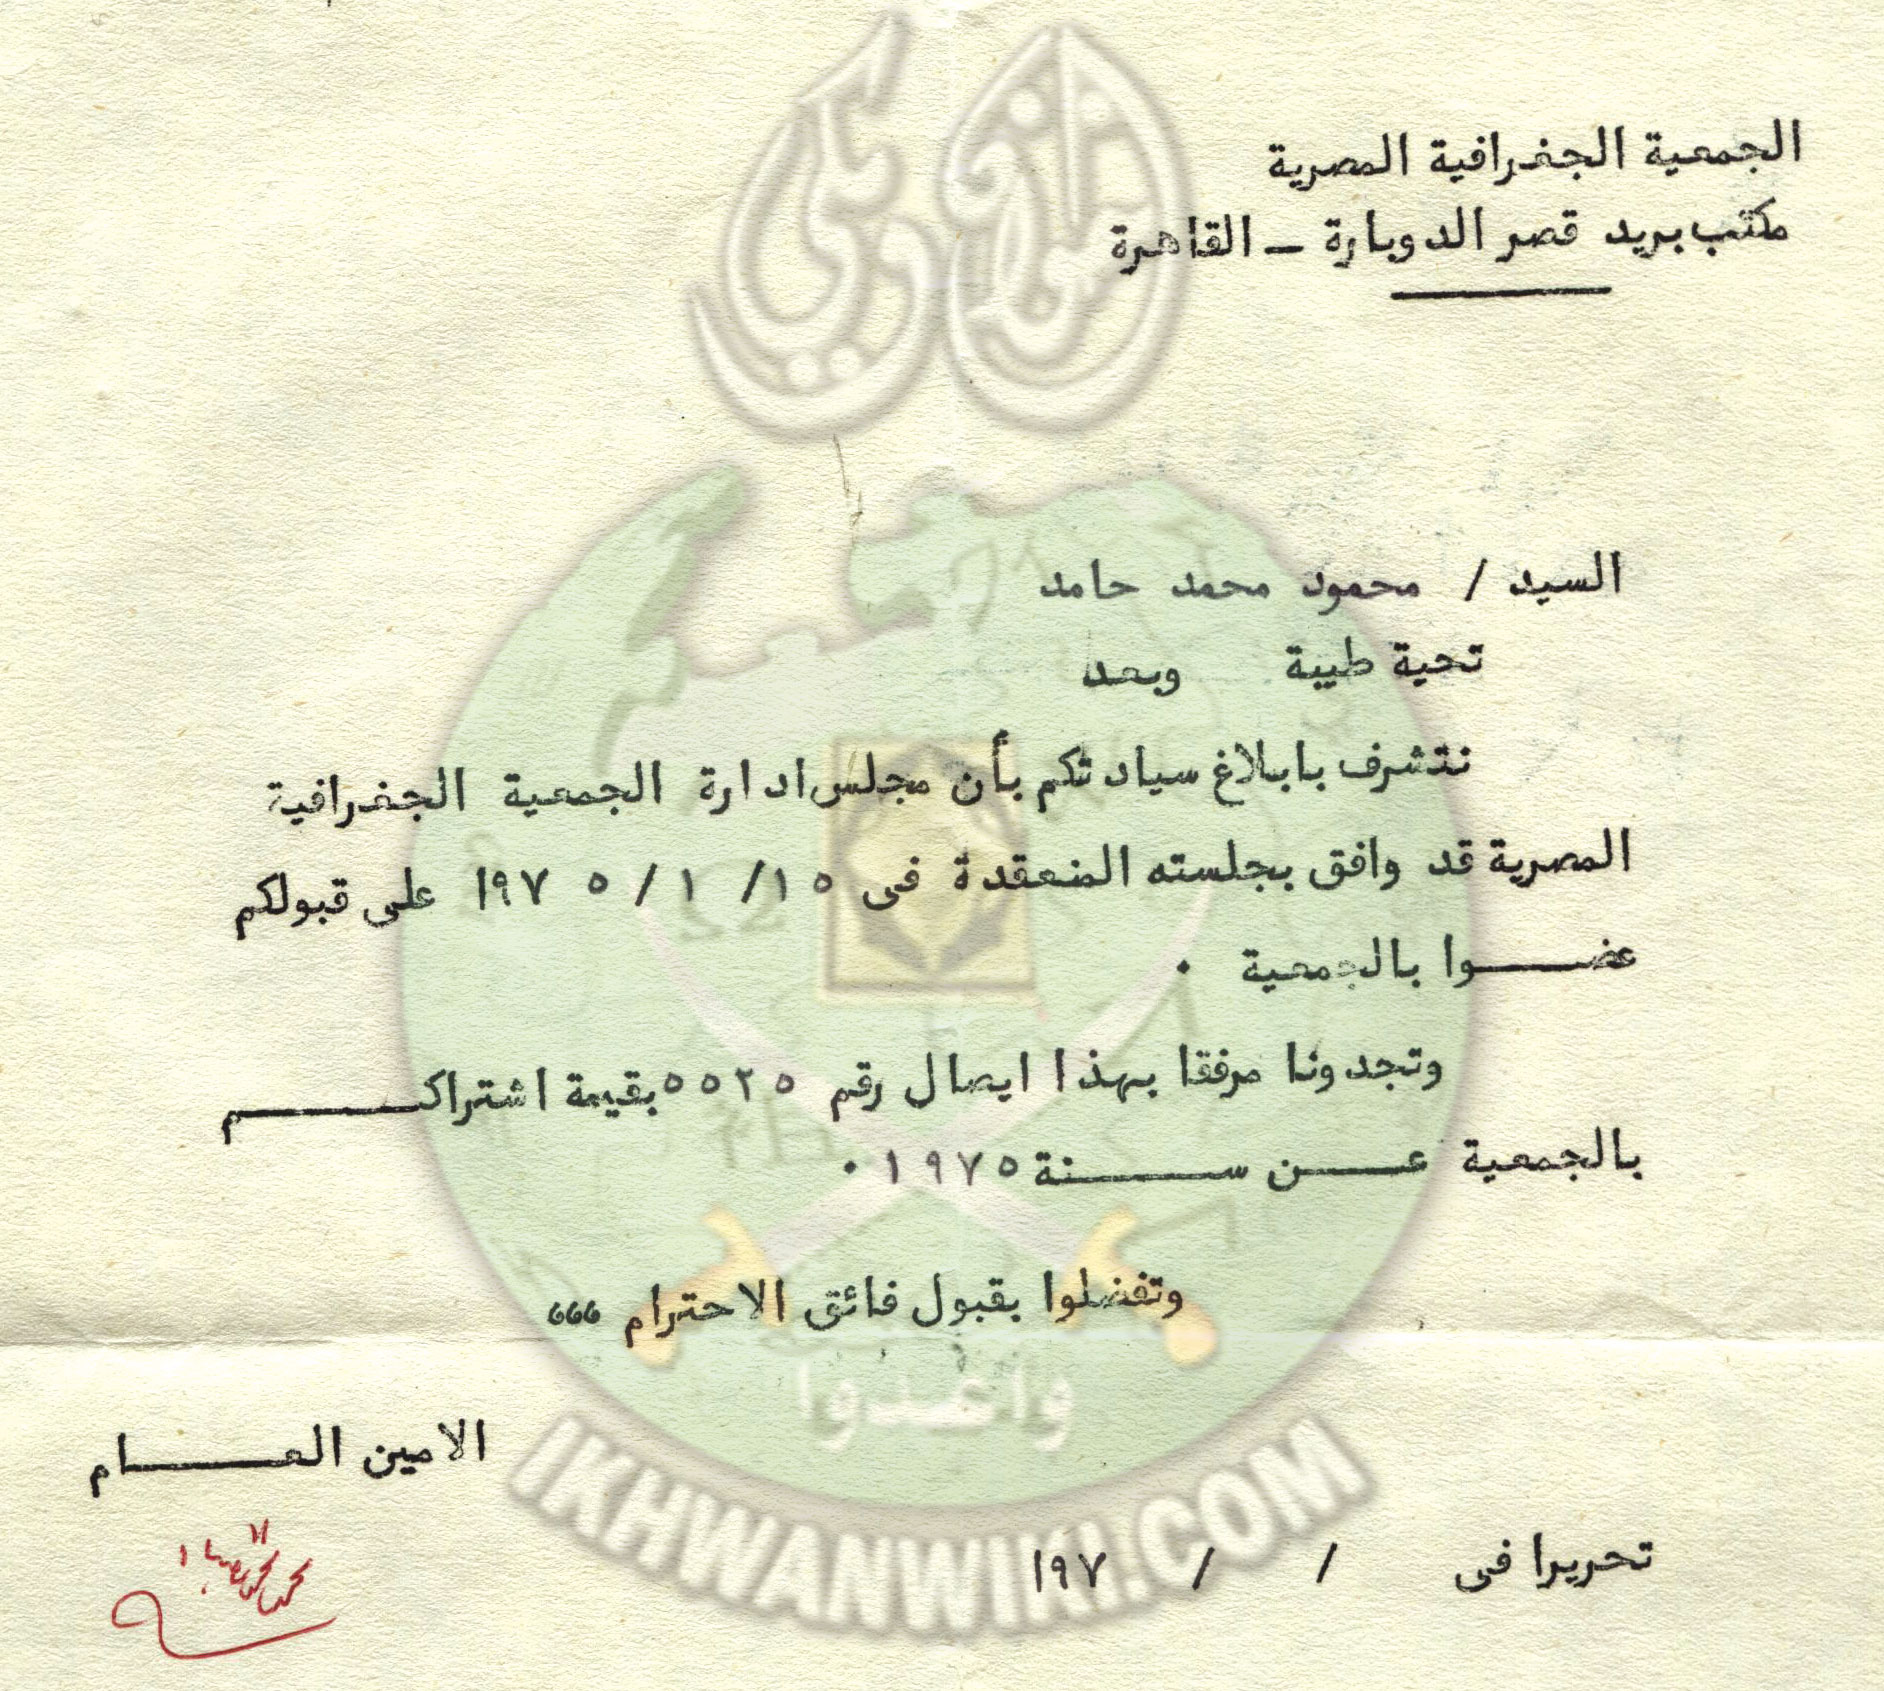 الجمعية الجغرافية المصرية
مكتب بريد قصر الدوبارة – القاهرة
السيد / محمود محمد حامد
تحية طيبة وبعد
نتشرف بابلاغ سيادتكم بأن مجلس ادارة الجمعية الجغرافية
المصرية قد وافق بجلسته المنعقدة فى ١٥ / ١ / ١٩٧٥ على قبولكم
عضـــوا بالجمعية ٠
وتجدونا مرفقا بهذا ايصال رقم ٥٥٢٥ بقيمة اشتراكــــم
بالجمعية عـــن ســـنة ١٩٧٥ ٠
وتفضلوا بقبول فائق الاحترام ،،،
الامين العـــــام
تحريرا فى / / ١٩٧
واعدوا
IKHWANWIKI.COM